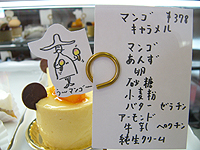 マンゴ ¥378
キャラメル
マンゴ
あんず
卵
砂糖
小麦粉
バター ゼラチン
アーモンド
牛乳 ペクチン
純生クリーム
ラーマンゴー